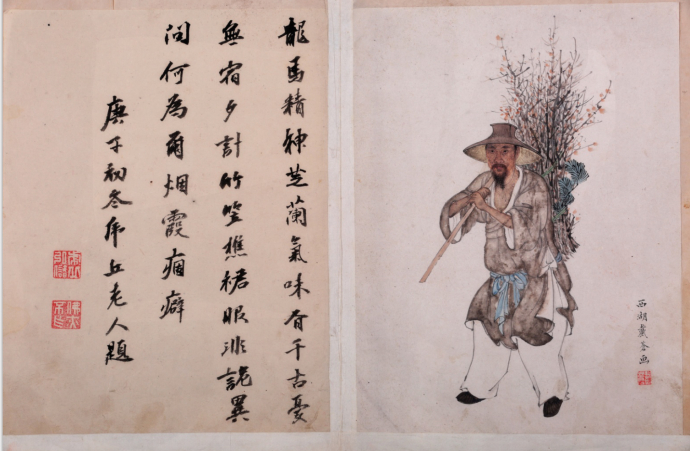 龍馬精神芝蘭氣味有千古憂
無宿夕計竹笠樵裙服非詭異
問何為爾烟霞痼癖
庚子初冬虎丘老人題
西湖戴画